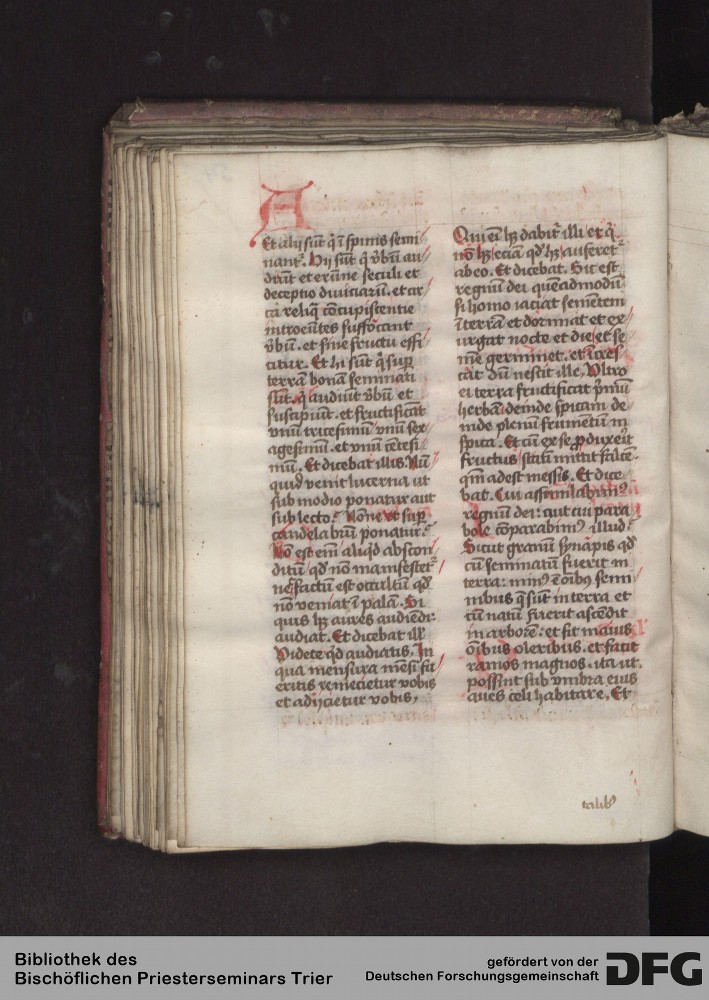 A
Et alij sūt q̄ ī spinis semi
nant᷑. Hij sūt q̄ v̄bū au
diūt et erūne seculi et
deceptio diuiciarū. et cir
ca reliq̄ cōcupiscentie
introeūtes suffocant
v̄bū. et sine fructu effi
citur. Et hi sūt q̄ sup̄
terrā bonā seminati
sūt. q̄ audiūt v̄bū et
suscipiūt. et fructificāt
vnū tricesimū vnū sex
agesimū. et vnū cētesi
mū. Et dicebat illis. Nū
quid venit lucerna ut
sub modio ponatur aut
sub lecto. Nonne ut sup̄
candelabrū ponatur.
Nō est em̄ aliq̄d abscon
ditū qd̄ nō manifestet᷑
nec factū est occultū qd̄
nō veniat ī palā. Si
quis hꝫ aures audiēdi:
audiat. Et dicebat ill᷑
Videte q̄d audiatis. In
qua mensura mēsi fu
eritis remecietur vobis
et adijcietur vobis.
Qui em̄ hꝫ dabit᷑ illi et q̄
nō hꝫ eciā qd̄ hꝫ auferet᷑
ab eo. Et dicebat. Sic est
regnū dei quēadmodū
si homo iaciat sementem
ī terrā et dormiat et ex
urgat nocte et die et se
mē germinet. et īcres
cat dū nescit ille. Vltro
ei terra fructificat p̄mū
herbā deinde spicam de
inde plenū frumētū in
spica. Et cū ex se ꝓduxe͛it
fructus statī mittit falcē.
qm̄ adest messis. Et dice
bat. Cui assimilabimꝰ
regnū dei: aut cui para
bole cōparabimꝰ illud.
Sicut granū synapis qd̄
cū seminatū fuerit in
terra: minꝰ ē oībꝰ semi
nibus q̄ sūt in terra et
cū natū fuerit ascēdit
in arborē: et fit maius
oībus oleribus. et facit
ramos magnos. ita ut
possint sub vmbra eius
aues celi habitare. Et
talibꝰ
Bibliothek des
Bischöflichen Priesterseminars Trier
gefördert von der
Deutschen Forschungsgemeinschaft
DFG